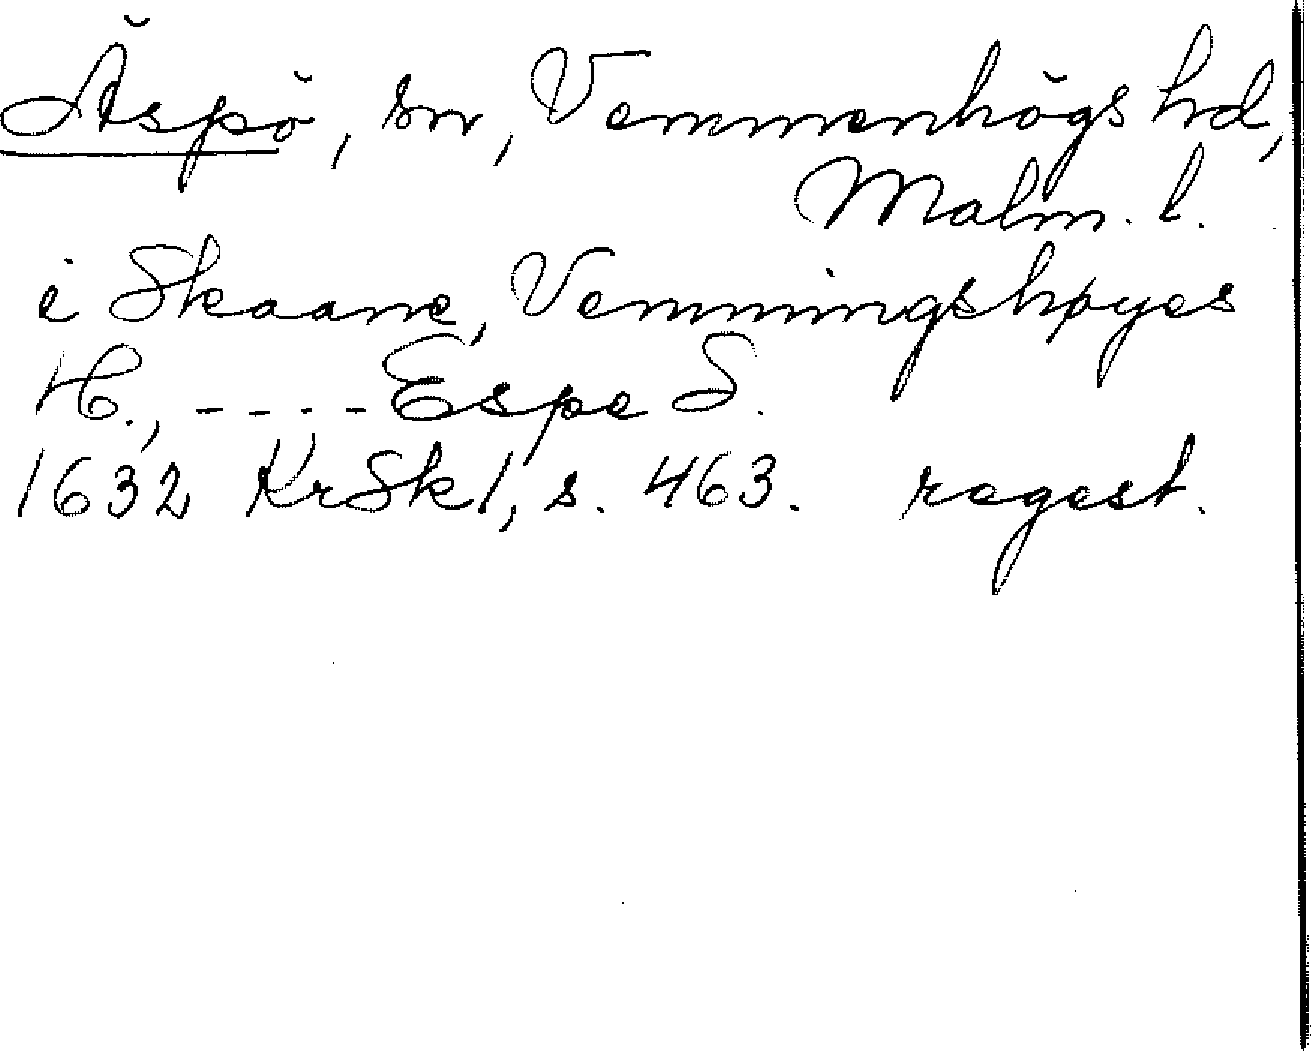 Äspö, sn, Vemmenhögs hd,
Malm. l.
i Skaane, Vemmingshøyes
H., - - - - Espe S.
1632 KrSk 1, s. 463. regest.